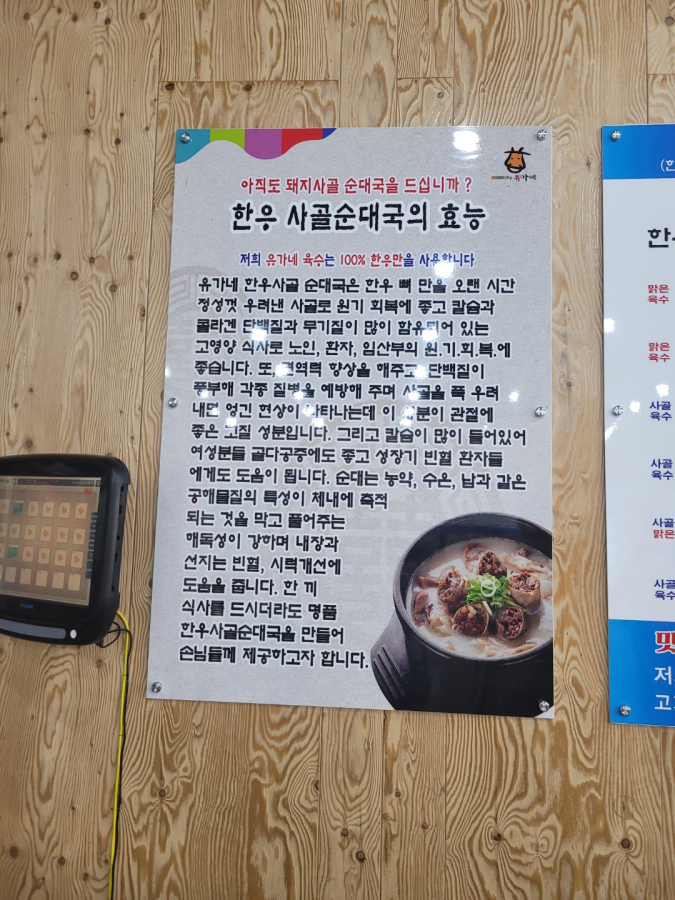 유가네
아직도 돼지사골 순대국을 드십니까 ?
한우 사골순대국의 효능
저희 유가네 육수는 100% 한우만을 사용합니다
유가네 한우사골 순대국은 한우 뼈 만을 오랜 시간
정성껏 우려낸 사골로 원기 회복에 좋고 칼슘과
콜라겐 단백질과 무기질이 많이 함유되어 있는
고영양 식사로 노인, 환자, 임산부의 원.기.회.복.에
좋습니다. 또, 면역력 향상을 해주고 단백질이
풍부해 각종 질병을 예방해 주며 사골을 푹 우려
내면 엉긴 현상이 나타나는데 이 성분이 관절에
좋은 교질 성분입니다. 그리고 칼슘이 많이 들어있어
여성분들 골다공증에도 좋고 성장기 빈혈 환자들
에게도 도움이 됩니다. 순대는 농약, 수은, 납과 같은
공해물질의 특성이 체내에 축적
되는 것을 막고 풀어주는
해독성이 강하며 내장과
선지는 빈혈, 시력개선에
도움을 줍니다. 한 끼
식사를 드시더라도 명품
한우사골순대국을 만들어
손님들께 제공하고자 합니다.
(한
한
맑은
육수
맑은
육수
사골
육수
사골
육수
사골
맑은
사골
육수
맛
저
고